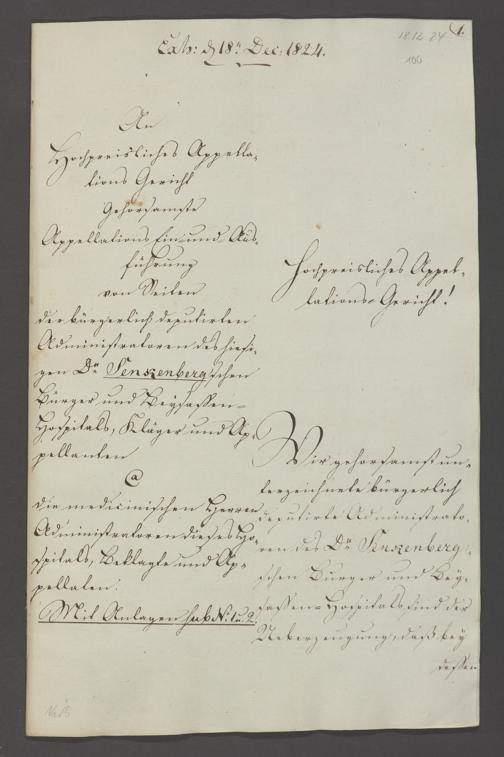 Exh: d 18n Dec: 1824.
18.12.24
1.
100
An
Hochpreisliches Appella-
tions Gericht
Gehorsamste
Appellations Ein- und Aus-
führung
von Seiten
der bürgerlich deputirten
Administratoren des hiesi-
gen Dr Senkenberg'schen
Bürger und Beysassen-
Hospitals, Kläger und Ap-
pellanten
Ca
die medicinischen Herren
Administratoren dieses Ho-
spitals, Beklagte und Ap-
pellaten.
Mit Anlagen sub No: 1 u. 2.
Hochpreisliches Appel-
lations-Gericht!
Wir gehorsamst un-
terzeichnete bürgerlich
deputirte Administrato-
ren des Dr Senkenberg-
schen Bürger und Bey-
sassen-Hospitals, sind der
Ueberzeugung, daß bey
dessen